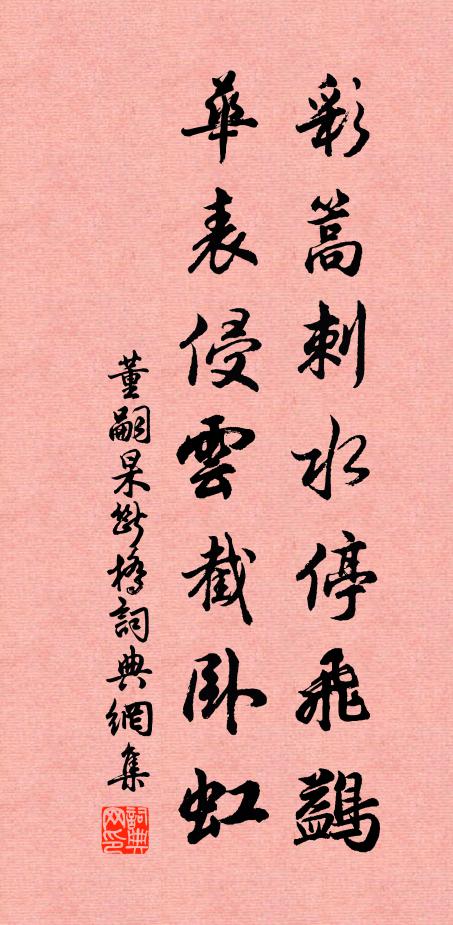 彩篙刺水停飛鷁
華表侵雲截臥虹
董嗣杲斷橋詞典網集
詞典网印